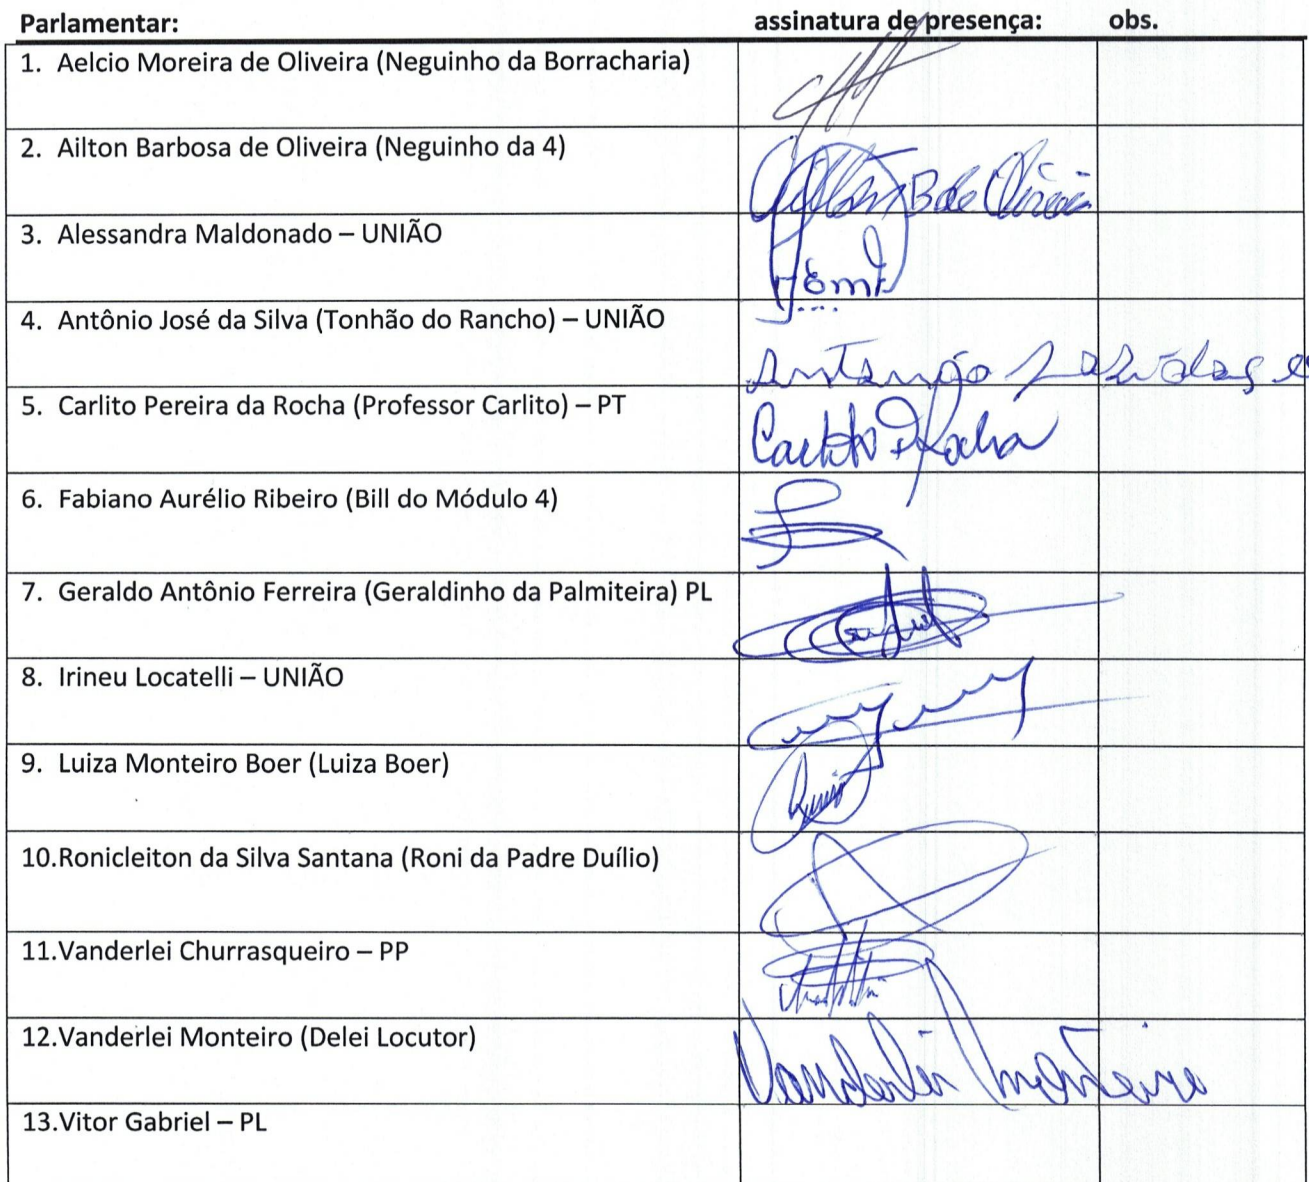 Parlamentar: assinatura de presença: obs.
1. Aelcio Moreira de Oliveira (Neguinho da Borracharia)
2. Ailton Barbosa de Oliveira (Neguinho da 4) Ailton B de Oliveira
3. Alessandra Maldonado – UNIÃO
4. Antônio José da Silva (Tonhão do Rancho) – UNIÃO
5. Carlito Pereira da Rocha (Professor Carlito) – PT Carlito P Rocha
6. Fabiano Aurélio Ribeiro (Bill do Módulo 4)
7. Geraldo Antônio Ferreira (Geraldinho da Palmiteira) PL
8. Irineu Locatelli – UNIÃO
9. Luiza Monteiro Boer (Luiza Boer)
10.Ronicleiton da Silva Santana (Roni da Padre Duílio)
11.Vanderlei Churrasqueiro – PP
12.Vanderlei Monteiro (Delei Locutor) Vanderlei Monteiro
13.Vitor Gabriel – PL